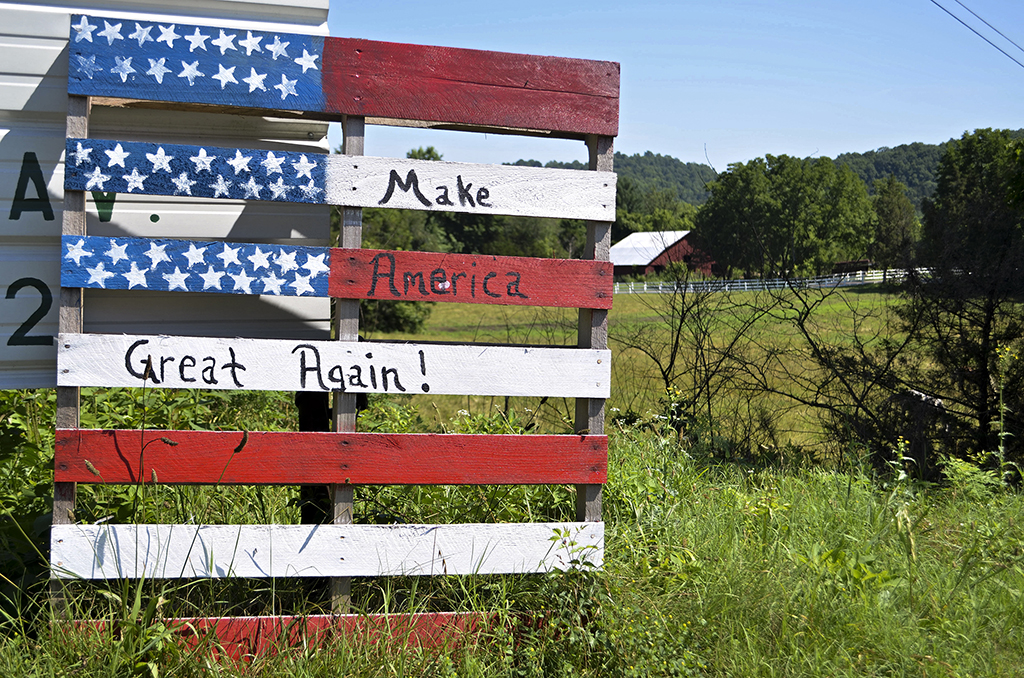 Make
America
Great Again!
A V.
2